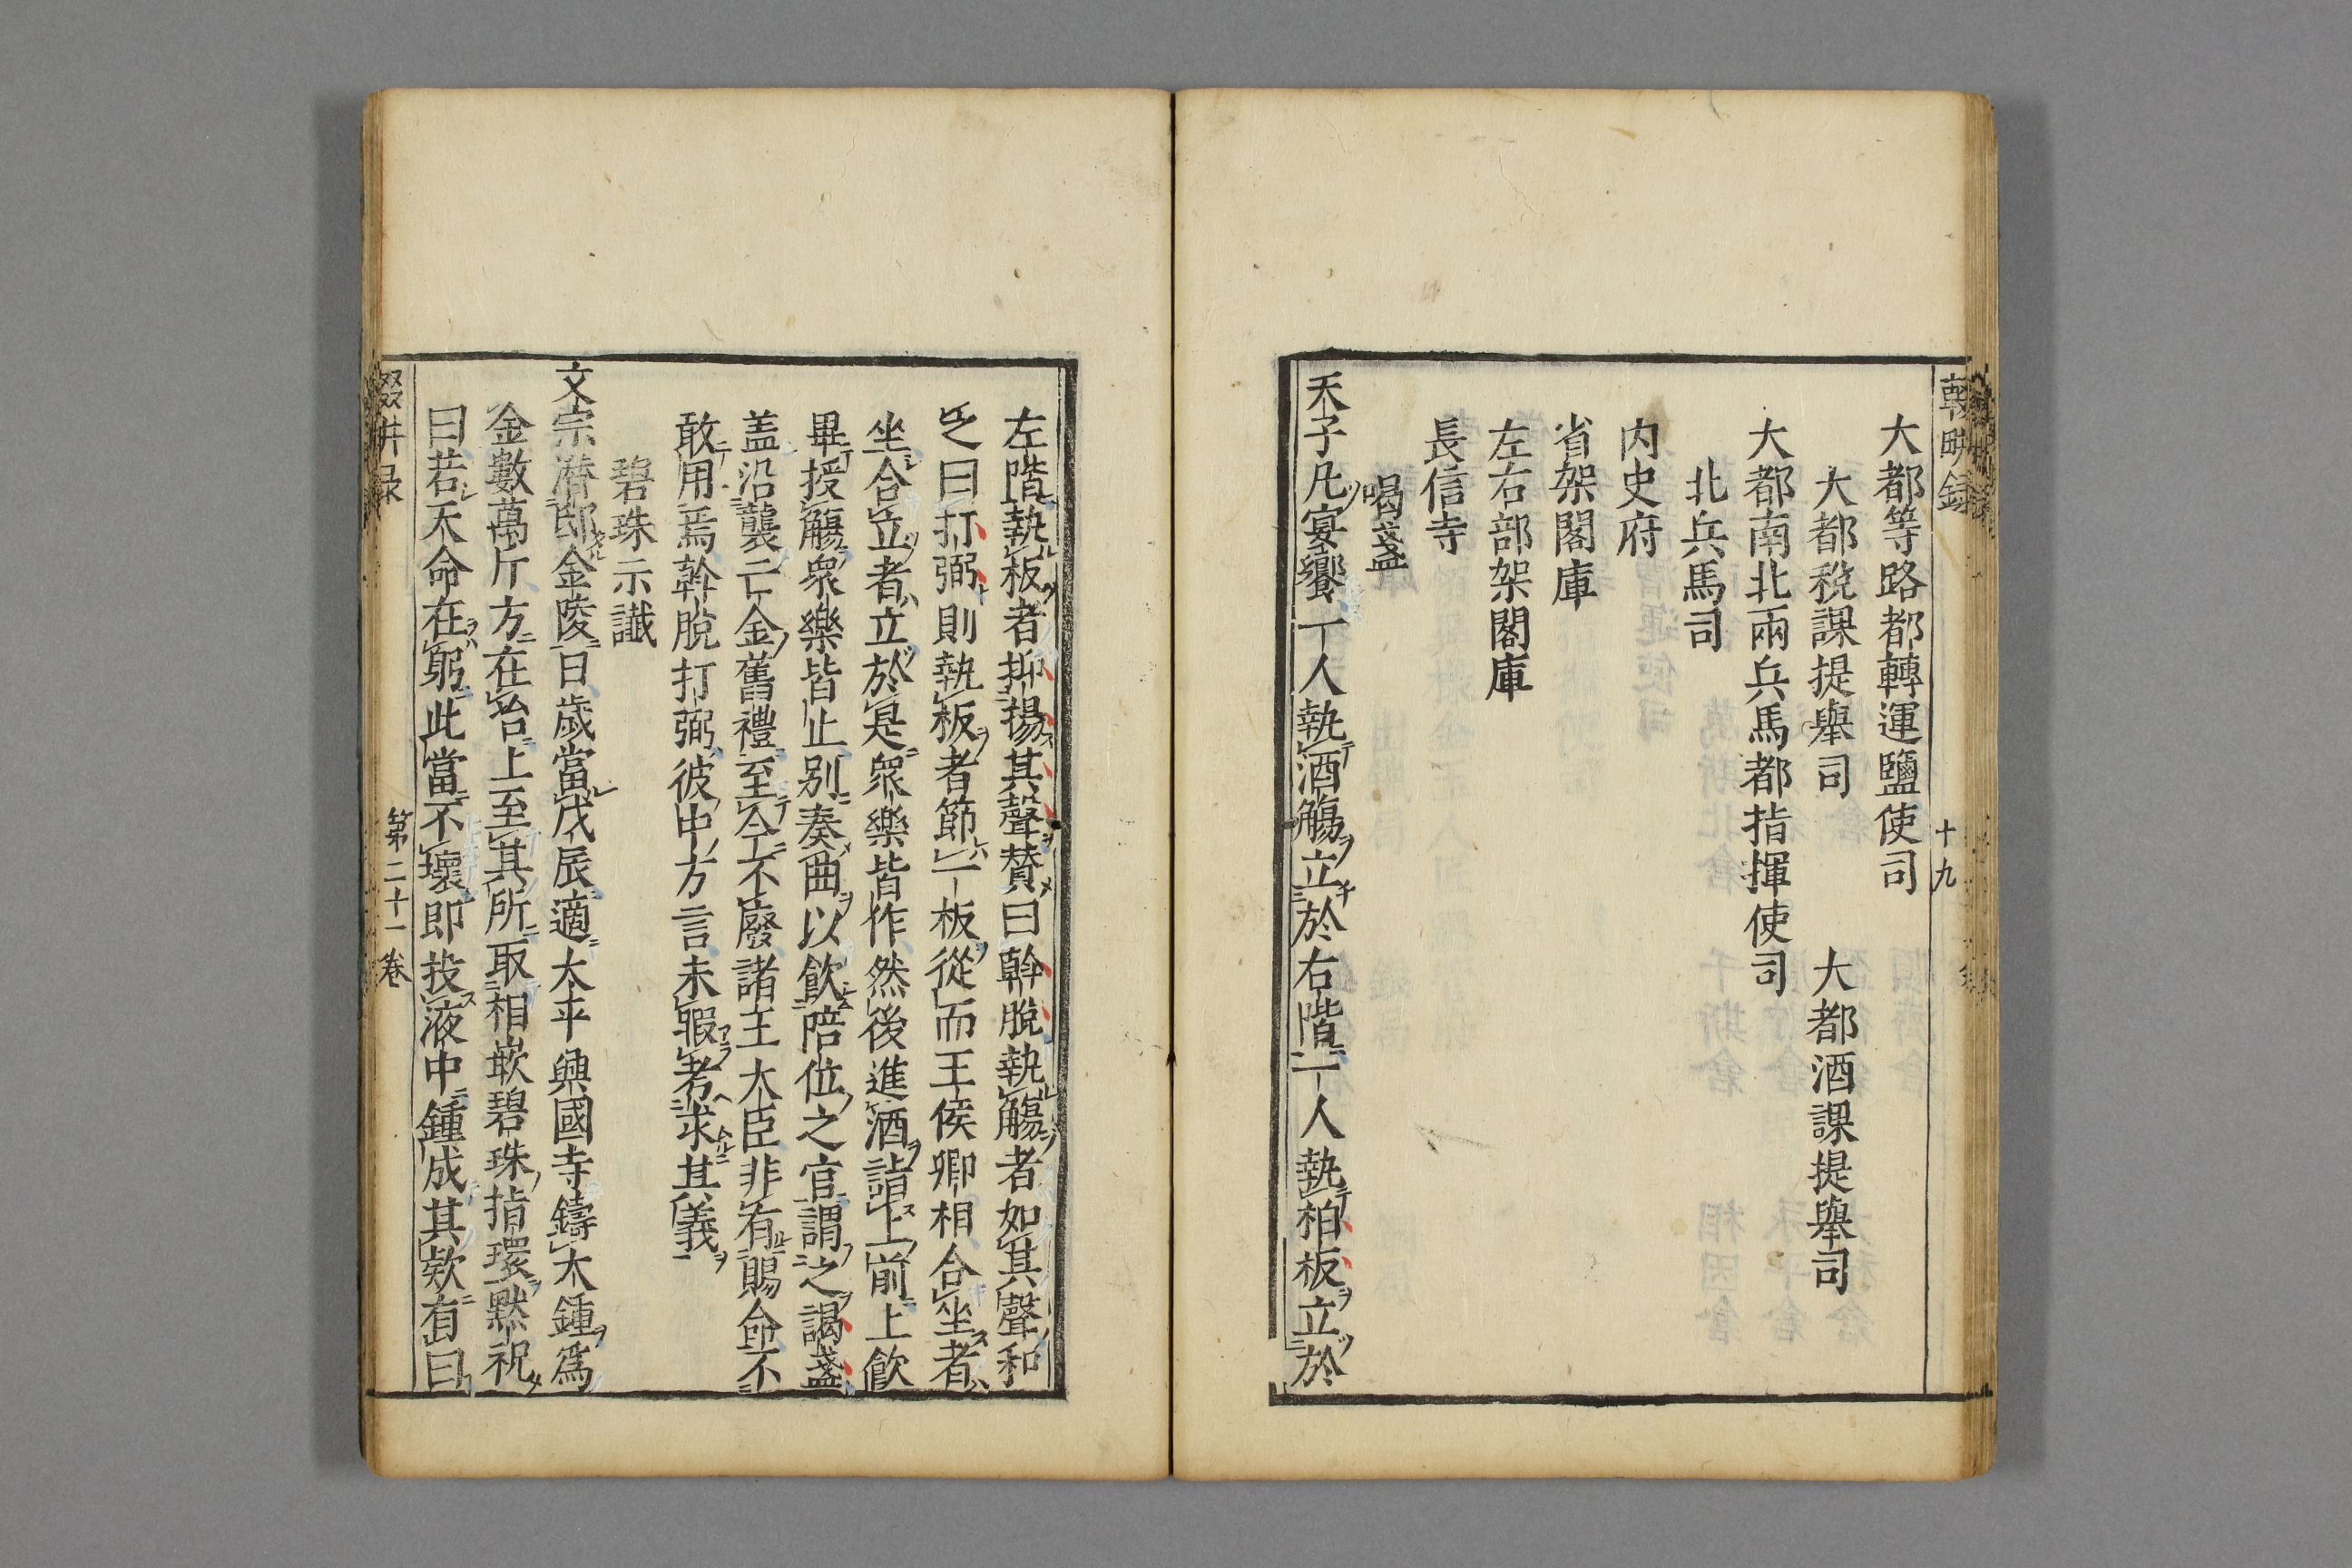 大都等路都轉運鹽使司
大都稅課提舉司　大都酒課提舉司
大都南北兩兵馬都指揮使司
北兵馬司
内史府
省架閣庫
左右部架閣庫
長信寺
喝盞
天子凡宴饗一人執酒觴立於右階一人執柏板立於
十九
左階執板者抑揚其聲賛曰斡脫執觴者如其聲和
之曰打弼則執板者節一板從而王侯卿相合坐者
坐合立者立於是衆樂皆作然後進酒詣上前上飲
畢授觴衆樂皆止别奏曲以飲陪位之官謂之謁盞
盖沿襲亡金舊禮至今不廢諸王大臣非有賜命不
敢用焉斡脫打弼彼中方言未暇考求其義
碧珠示讖
文宗潜邸金陵日歲當戊辰適太平興國寺鑄大鍾爲
金數萬斤方在冶上至其所取相嵌碧珠指環默祝
曰若天命在躬此當不壞即投液中鍾成其欵有曰
第二十一卷